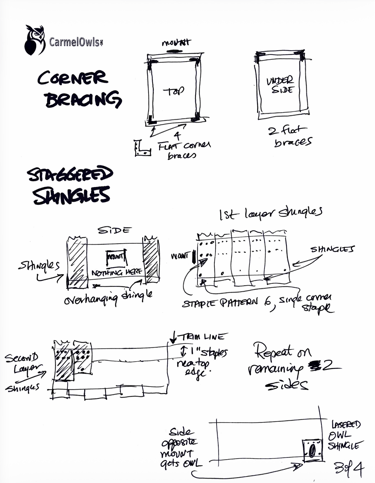 CarmelOwls
CORNER
BRACING
MOUNT
TOP
4
FLAT corner
braces
UNDER
SIDE
2 flat
braces
STAGGERED
SHINGLES
SIDE
MOUNT
NOTHING HERE
Shingles
overhanging shingle
1st layer shingles
MOUNT
SHINGLES
STAPLE PATTERN 6, single corner
staple
Second
Layer
Shingles
TRIM LINE
1" staples
near top
edge.
Repeat on
remaining 2
sides
Side
opposite
mount
gets OWL
LASERED
OWL
SHINGLE
3 of 4